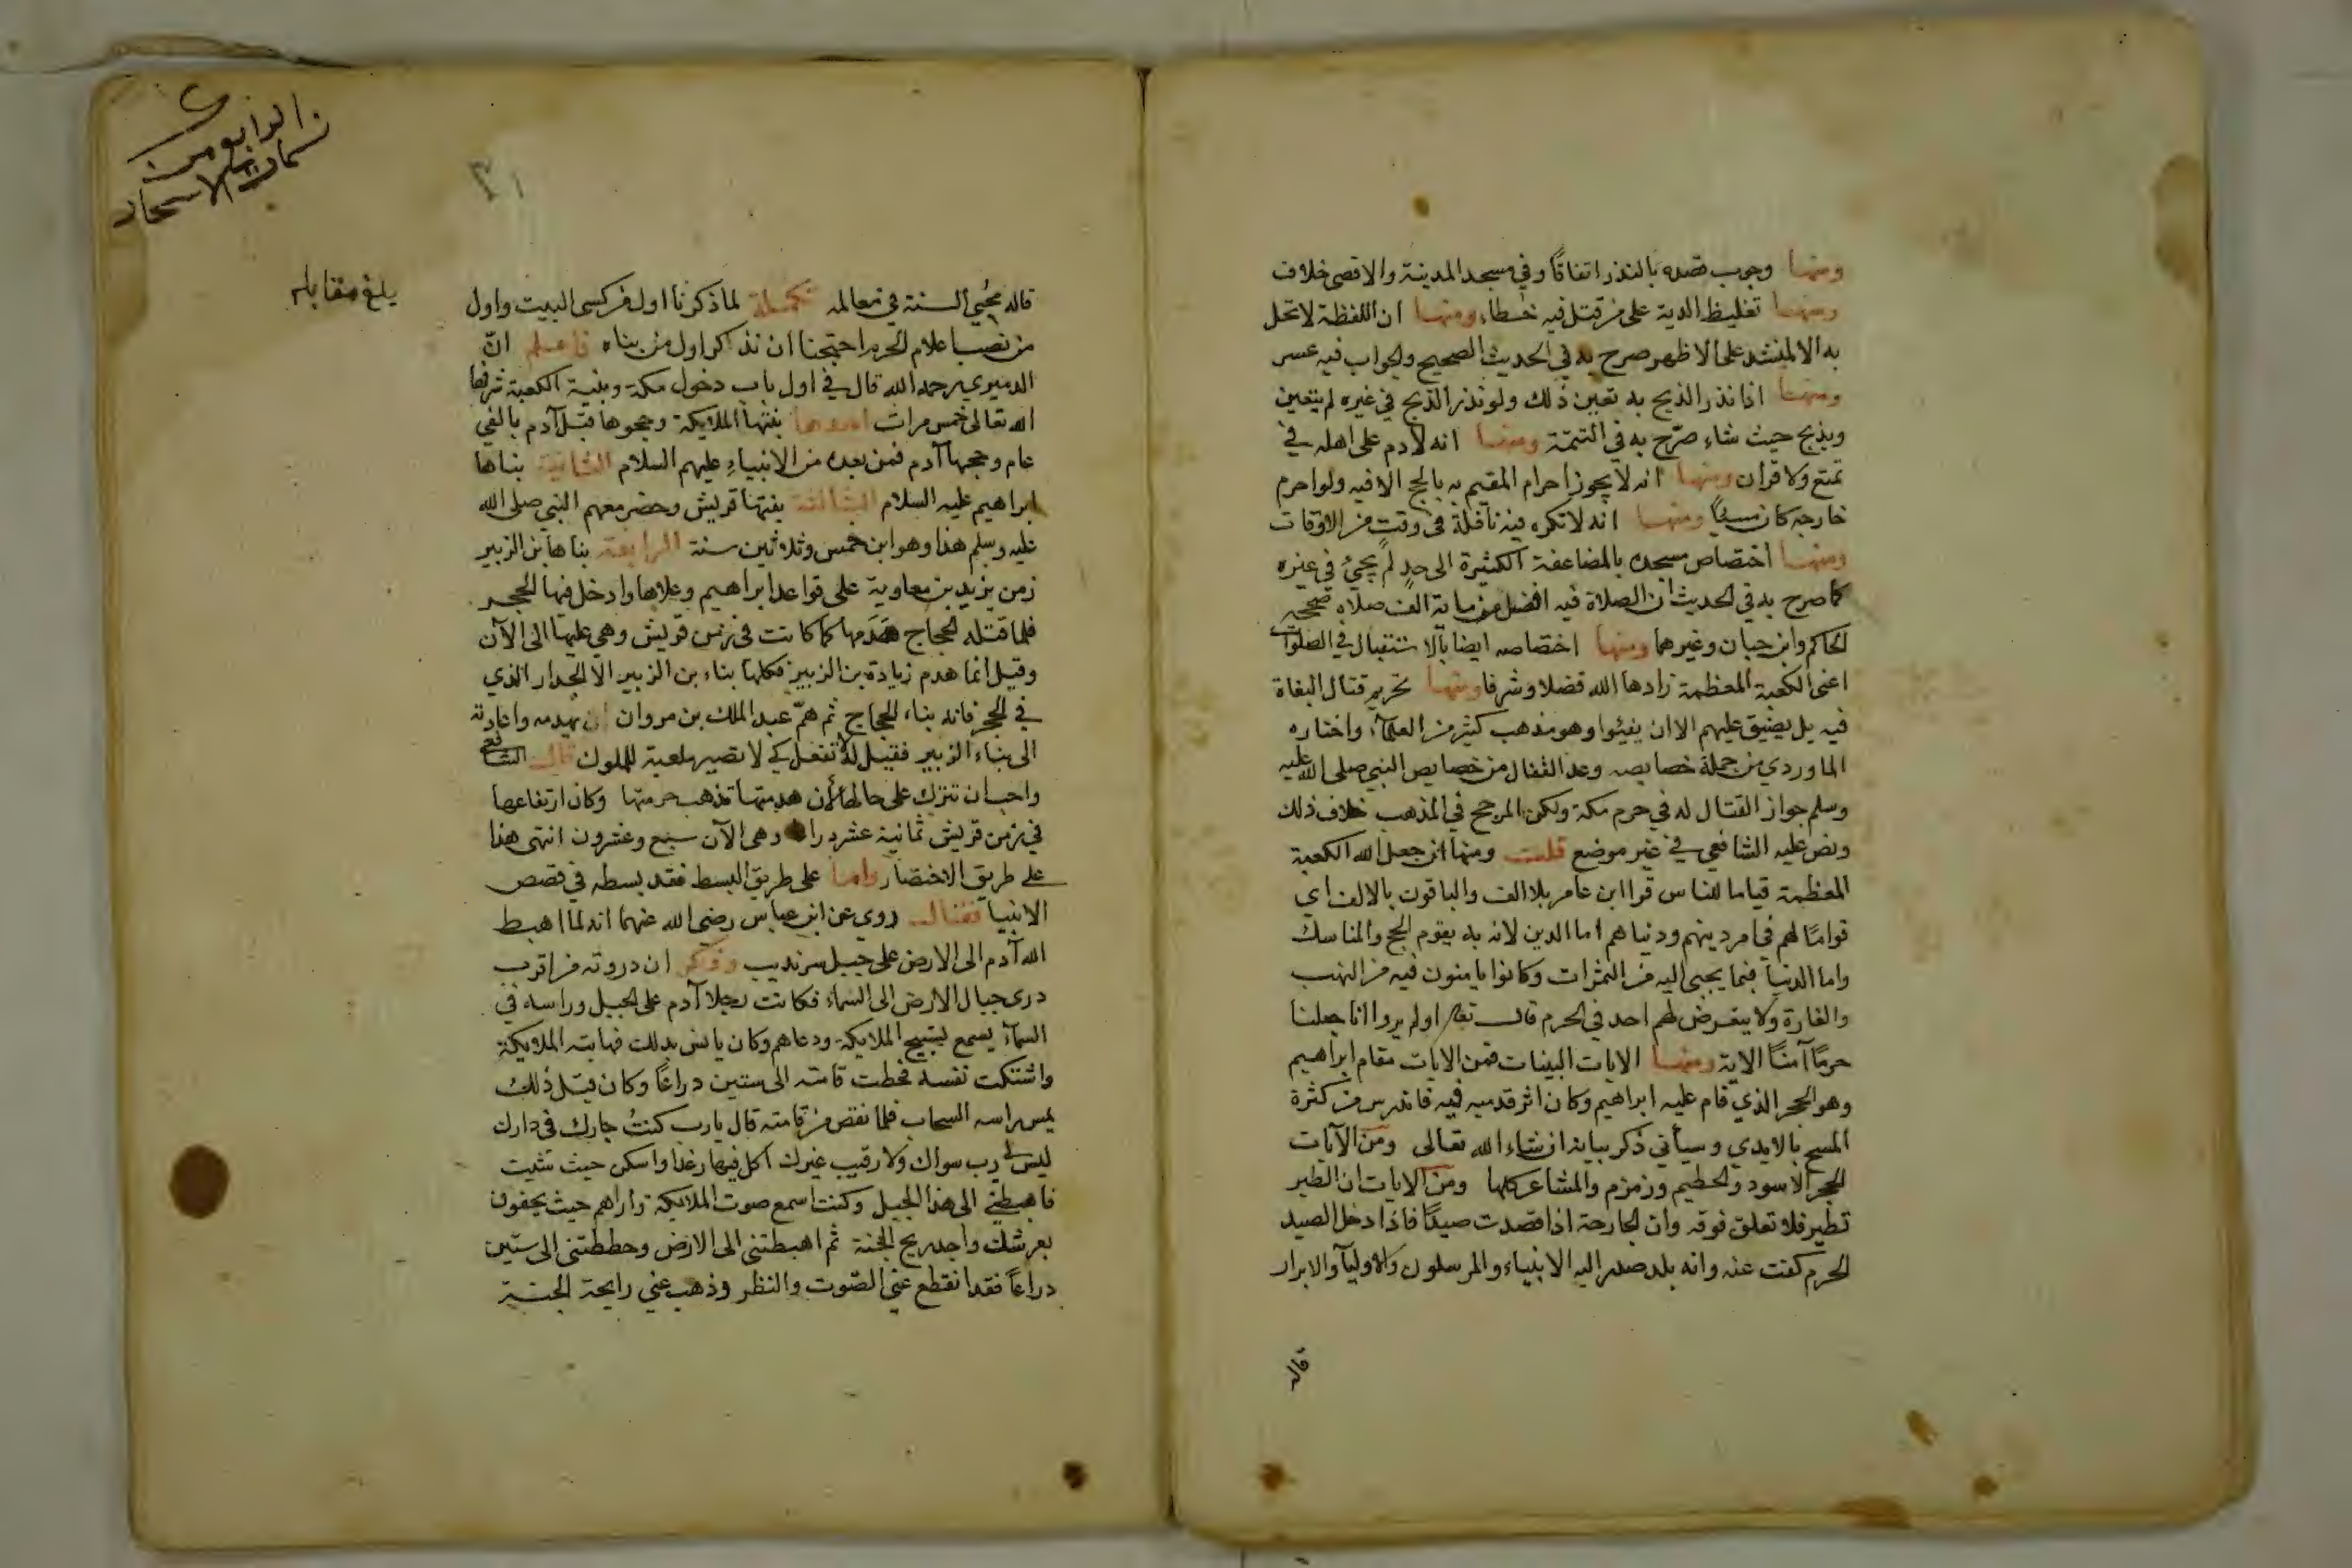 ومنها وجوب قصده بالنذر اتفاقًا وفي مسجد المدينة والاقصى خلاف
ومنها تغليظ الدية على من قتل فيه خطاء ومنها ان اللقطة لا تحل
به الا لمنشد على الاظهر صرح به في الحديث الصحيح والجواب فيه عسر
ومنها اذا نذر الذبح به تعين ذلك ولو نذر الذبح في غيره لم يتعين
ويذبح حيث شاء صرّح به في التتمة ومنها انه لا دم على اهله في
تمتع ولا قران ومنها انه لا يجوز احرام المقيم به بالحج الا فيه ولو احرم
خارجه كان مسيًا ومنها انه لا تكره فيه نافلة في وقت من الاوقات
ومنها اختصاص مسجده بالمضاعفة الكثيرة الى حدٍ لم يجئ في غيره
كما صرح به في الحديث ان الصلاة فيه افضل من ماية الف صلاه صححه
الحاكم وابن حبان وغيرهما ومنها اختصاصه ايضا بالاستقبال في الصلوات
اعنى الكعبة المعظمة زادها الله فضلا وشرفا ومنها تحريم قتال البغاة
فيه بل يضيق عليهم الا ان يفيئوا وهو مذهب كثير من العلمآء واختاره
الماوردي من جملة خصايصه وعد القفال من خصايص النبي صلى الله عليه
وسلم جواز القتال له في حرم مكة ولكن المرجح في المذهب خلاف ذلك
ونص عليه الشافعي في غير موضع قلت ومنها ان جعل الله الكعبة
المعظمة قياما للناس قرا ابن عامر بلا الف والباقون بالالف اي
قوامًا لهم في امر دينهم ودنياهم اما الدين لانه به يقوم الحج والمناسك
واما الدنيا فيما يجبى اليه من الثمرات وكانوا يامنون فيه من النهب
والغارة ولا يتعرض لهم احد في الحرم قال تعالى اولم يروا انا جعلنا
حرمًا آمنًا الاية ومنها الايات البينات فمن الايات مقام ابراهيم
وهو الحجر الذي قام عليه ابراهيم وكان اثر قدميه فيه فاندرس من كثرة
المسح بالايدي وسيأتي ذكر بيانه ان شاء الله تعالى ومن الآيات
الحجر الاسود والحطيم وزمزم والمشاعر كلها ومن الايات ان الطير
تطير فلا تعلق فوقه وان الجارحة اذا قصدت صيدًا فاذا دخل الصيد
الحرم كفت عنه وانه بلد صدر اليه الانبياء والمرسلون والاوليآ والابرار
قاله
الرابع من
نسمات الاسحار
بلغ مقابله
قاله محُيي السنة في معالمه تكملة لما ذكرنا اول من كسى البيت واول
من نصب اعلام الحرم احتجنا ان نذكر اول من بناه فاعلم انّ
الدميري رحمه الله قال في اول باب دخول مكة وبنية الكعبة شرفها
الله تعالى خمس مرات احدوها بنتها الملايكة وحجوها قبل آدم بالفي
عام وحجها آدم فمن بعده من الانبياءِ عليهم السلام الثانية بناها
ابراهيم عليه السلام الثالثة بنتها قريش وحضر معهم النبي صلى الله
عليه وسلم هذا وهو ابن خمس وثلاثين سنة الرابعة بناها بن الزبير
زمن يزيد بن معاوية على قواعد ابراهيم وعلاها وادخل فيها الحجر
فلما قتله الحجاج هَدَمها كما كانت في زمن قريش وهي عليها الى الآن
وقيل انما هدم زيادة بن الزبير فكلها بناء بن الزبير الا الجدار الذي
في الحجر فانه بناء الحجاج ثم همّ عبد الملك بن مروان ان يهدمه واعادته
الى بناء الزبير فقيل له لا تفعل كي لا تصير ملعبة للملوك قال الشافعي
واحب ان تترك على حالها لأن هدمتها تذهب حرمتها وكان ارتفاعها
في زمن قريش ثمانية عشر دراعا وهي الآن سبع وعشرون انتهى هذا
على طريق الاختصار واما على طريق البسط فقد بسطه في قصص
الانبيا فقال روي عن ابن عباس رضى الله عنهما انه لما اهبط
الله آدم الى الارض على جبل سرنديب وذكر ان دروته من اقرب
درى جبال الارض الى السماء فكانت رجلا آدم على الجبل وراسه في
السمآء يسمع تسبيح الملايكة ودعاهم وكان يانس بذلك فهابته الملايكة
واشتكت نفسه فحطت قامته الى ستين دراعًا وكان قبل ذلك
يمس راسه السحاب فلما نقض من قامته قال يارب كنتُ جارك في دارك
ليس لي رب سواك ولا رقيب غيرك اكل فيها رغدا واسكن حيث شيت
فاهبطني الى هذا الجبل وكنت اسمع صوت الملايكة واراهم حيث يحفون
بعرشك واجد ريح الجنة ثم اهبطتنى الى الارض وحططتنى الى ستين
دراعًا فقد انقطع عني الصّوت والنظر وذهب عني رايحة الجنة